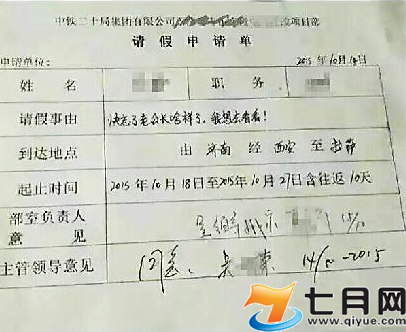 中铁二十局集团有限公司 改项目部
请假申请单
申请单位： 2015年10月14日
姓名 职务
请假事由 决忘了老公长啥样了，我想去看看！
到达地点 由 济南 经 西安 至 拉萨
起止时间 2015年10月18日至2015年10月27日含往返10天
部室负责人
意见
主管领导意见 同意 14/10-2015
七月网
www.qiyue.com